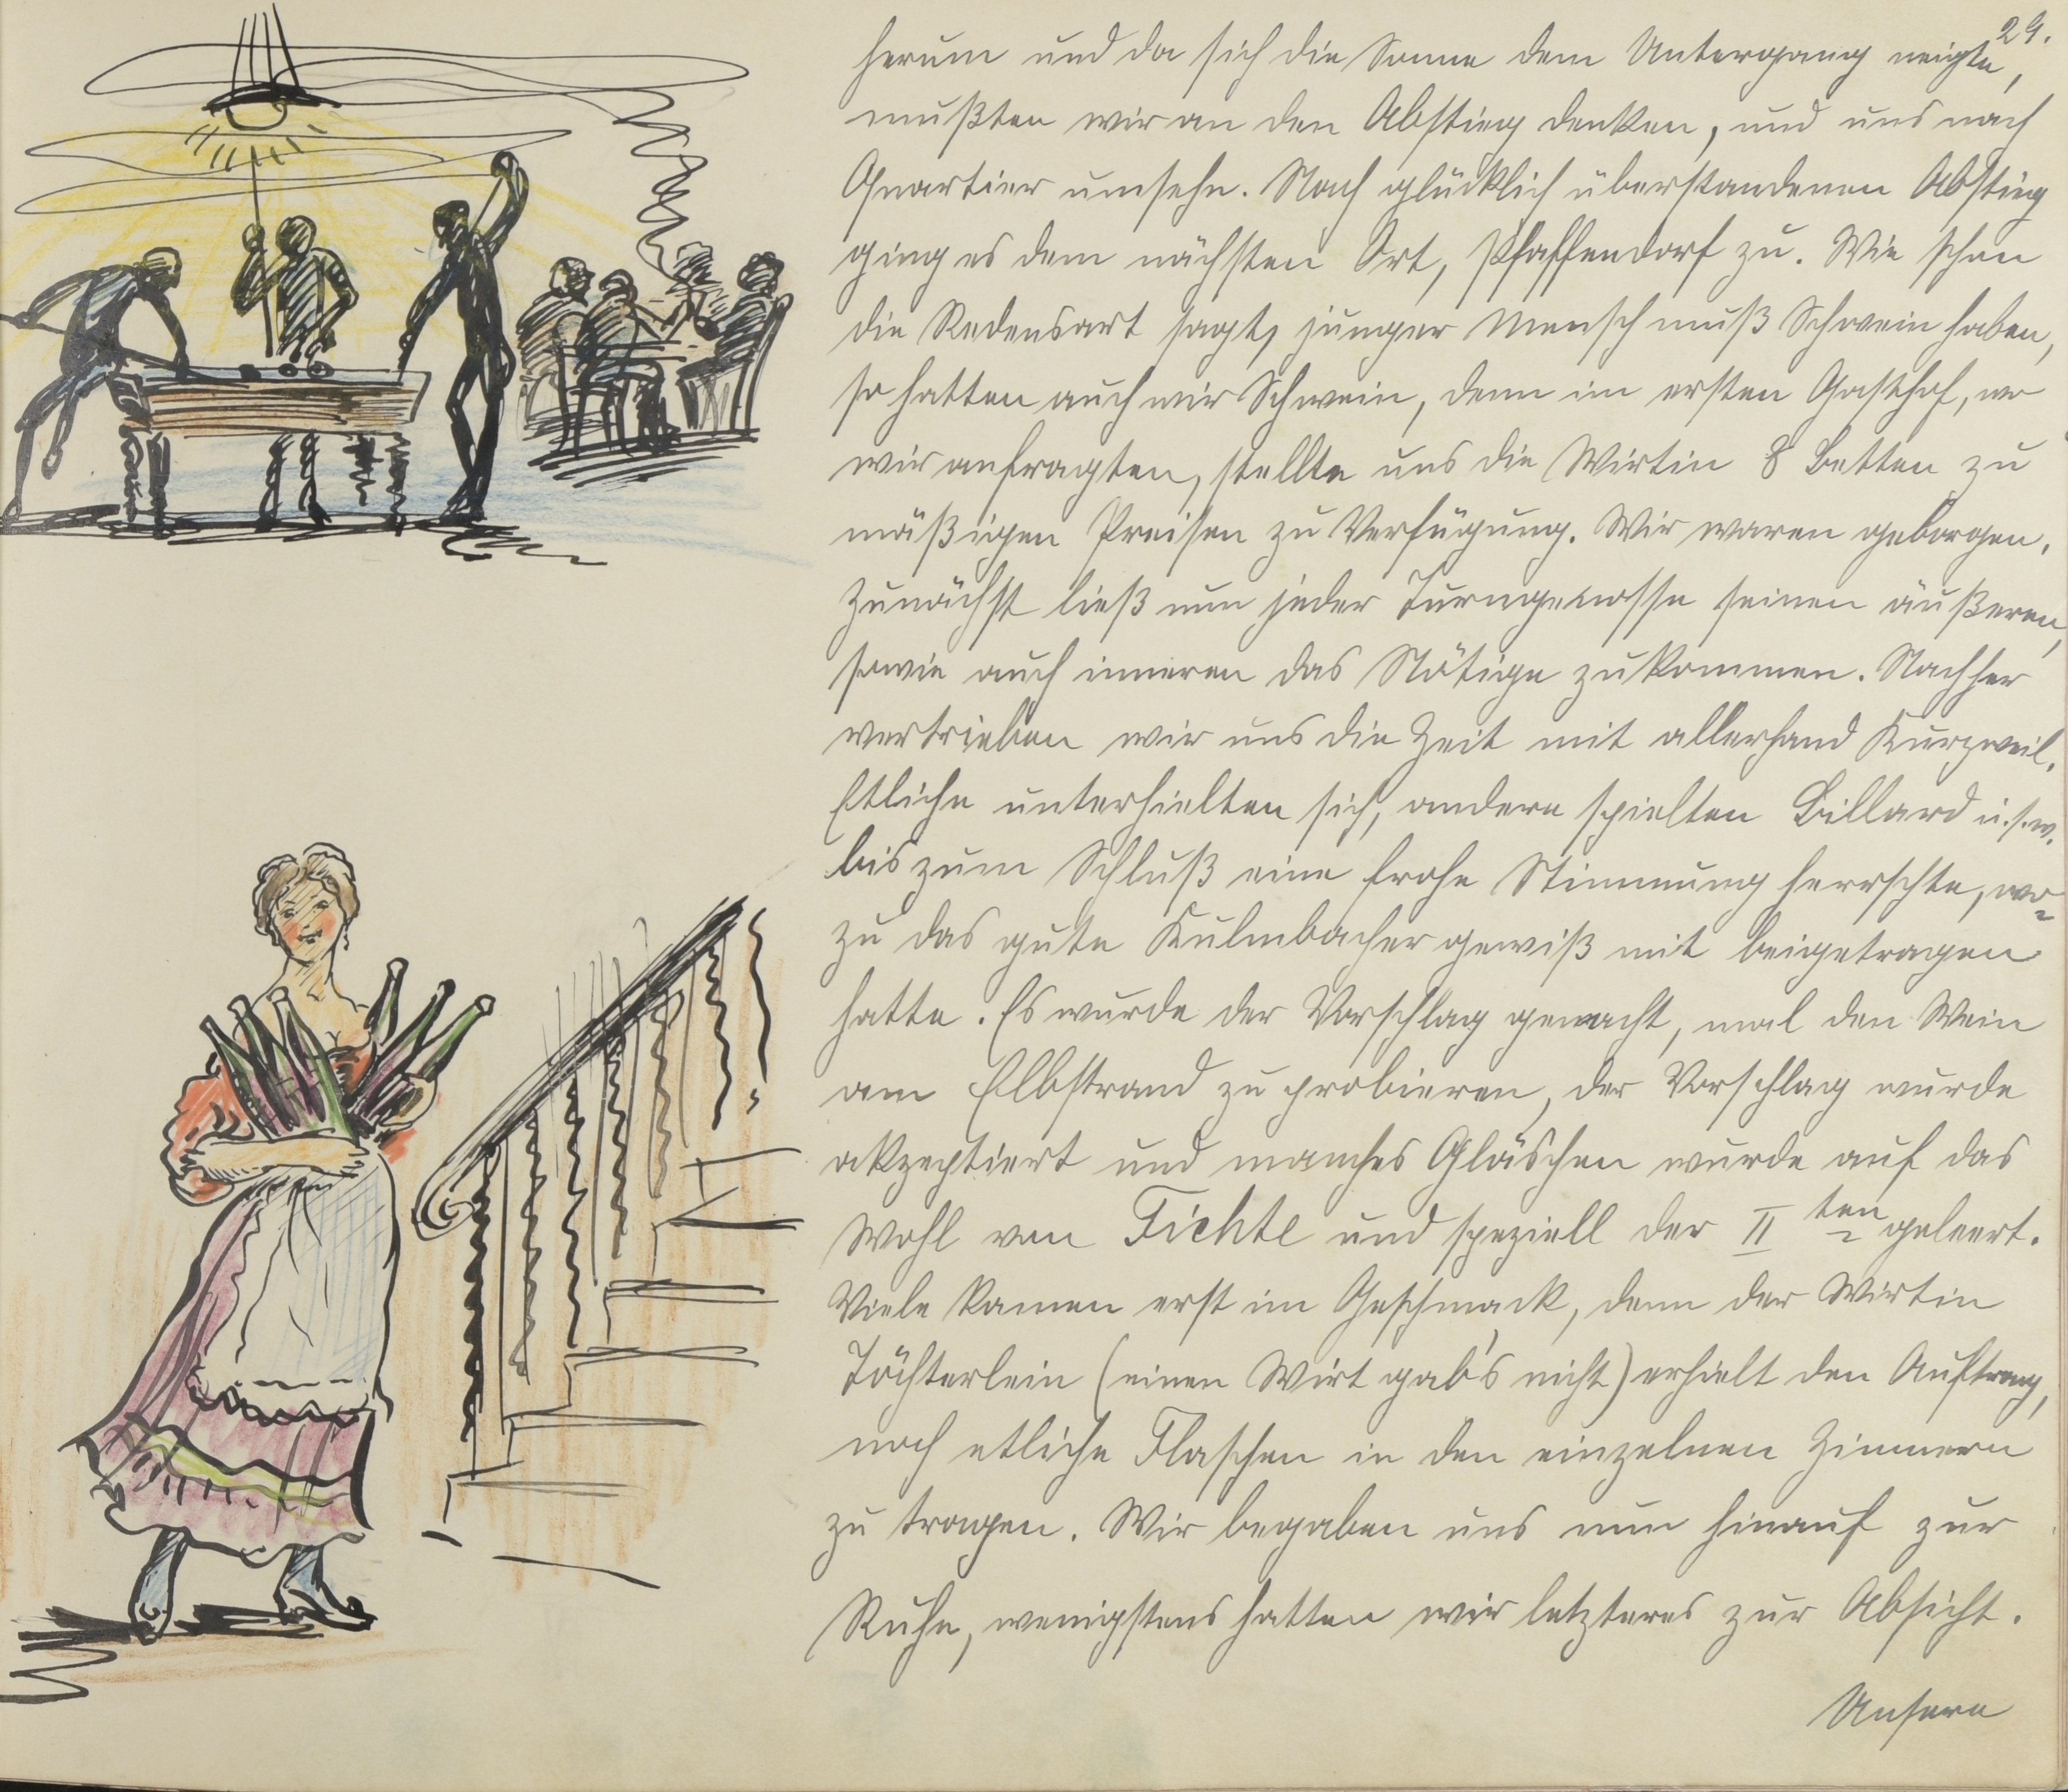 29.
herum und da sich die Sonne dem Untergang neigte,
mußten wir an den Abstieg denken, und uns nach
Quartier umsehn. Nach glücklich überstandenen Abstieg
ging es dem nächsten Ort, Pfaffendorf zu. Wie schon
die Redensart sagt, junger Mensch muß Schwein haben,
so hatten auch wir Schwein, denn im ersten Gasthof, wo
wir anfragten, stellte uns die Wirtin 8 Betten zu
mäßigen Preisen zu Verfügung. Wir waren geborgen.
Zunächst ließ nun jeder Turngenosse seinen äußeren,
sowie auch inneren das Nötige zukommen. Nachher
vertrieben wir uns die Zeit mit allerhand Kurzweil.
Etliche unterhielten sich, andere spielten Billard u.s.w.
bis zum Schluß eine frohe Stimmung herrschte, wo-
zu das gute Kulmbacher gewiß mit beigetragen
hatte. Es wurde der Vorschlag gemacht, mal den Wein
am Elbstrand zu probieren, der Vorschlag wurde
akzeptiert und manches Gläschen wurde auf das
Wohl von Fichte und speziell der II ten geleert.
Viele kamen erst im Geschmack, denn der Wirtin
Töchterlein (einen Wirt gab's nicht) erhielt den Auftrag,
noch etliche Flaschen in den einzelnen Zimmern
zu tragen. Wir begaben uns nun hinauf zur
Ruhe, wenigstens hatten wir letzteres zur Absicht.
Unsere